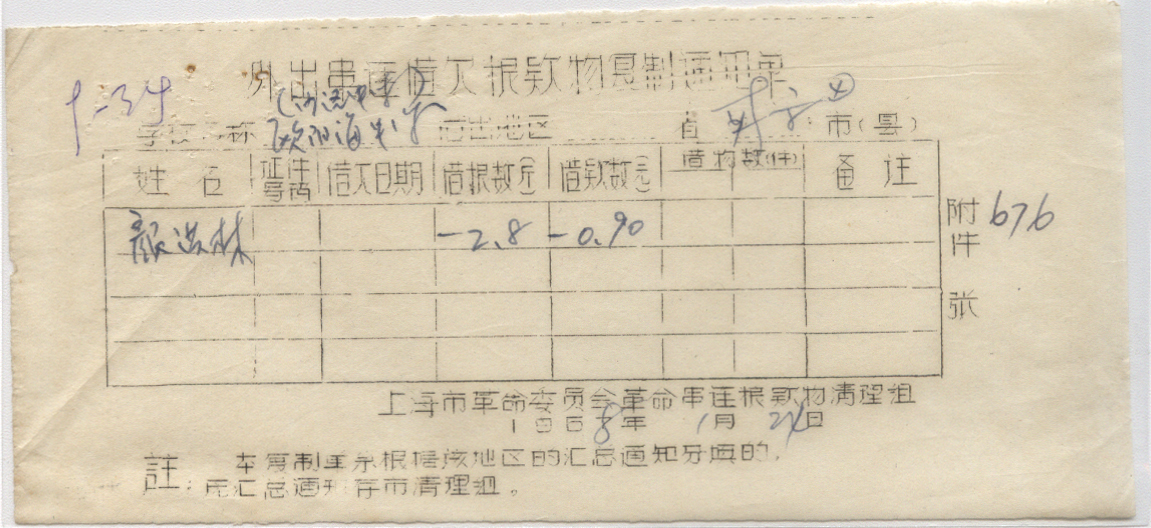 外出串连借欠粮款物复制通知单
9-34
学校名称 欧阳海中学 借出地区 省 市(县)
姓名 证件号码 借欠日期 借粮数(斤) 借款数(元) 借物数(件) 备注
颜洪林 -2.8 -0.90
附件 676 张
上海市革命委员会革命串连粮款物清理组
1968年 1月 24日
註: 本复制单系根据该地区的汇总通知另填的,
原汇总通知存市清理组。